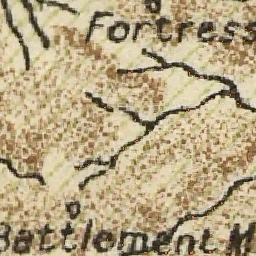 Fortress
Battlement M